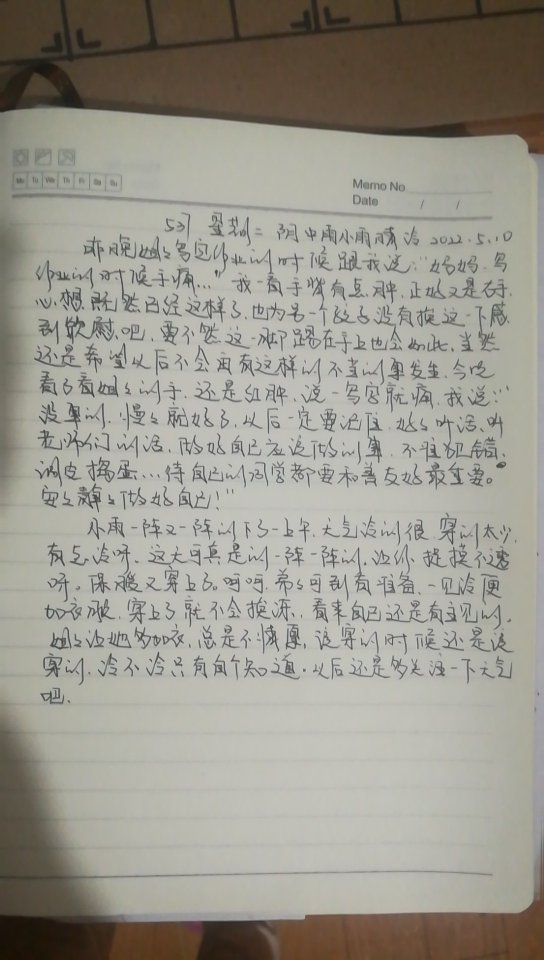 Mo Tu We Th Fr Sa Su
Memo No
Date / /
537 星期二 阴中雨小雨晴冷 2022.5.10
昨晚姐姐写完作业的时候跟我说:"妈妈,写
作业的时候手痛…"我一看手嘴有点肿,正好又是右手,
心想既然已经这样了,也为另一个孩子没有挨这一下感
到欣慰吧,要不然这一脚踢在手上也会如此,当然
还是希望以后不会再有这样的不当的事发生,今晚
看了看姐姐的手,还是红肿,说一写字就痛,我说:"
没事的,慢慢就好了,以后一定要记住,好好听话,听
老师们的话,做好自己应该做的事,不准犯错,
调皮捣蛋…,待自己的同学都要和善友好最重要。
安安静静做好自己!"
小雨一阵又一阵的下了一上午,天气冷的很,穿的太少,
有点冷呀,这天可真是的一阵一阵的,让你捉摸不透
呀,保暖又穿上了。呵呵,希希可别有准备,一见冷便
加衣服,穿上了就不会挨冻,看来自己还是有主见的。
姐姐让她多加衣,总是不情愿,该穿的时候还是该
穿的,冷不冷只有自个知道,以后还是多关注一下天气
吧.